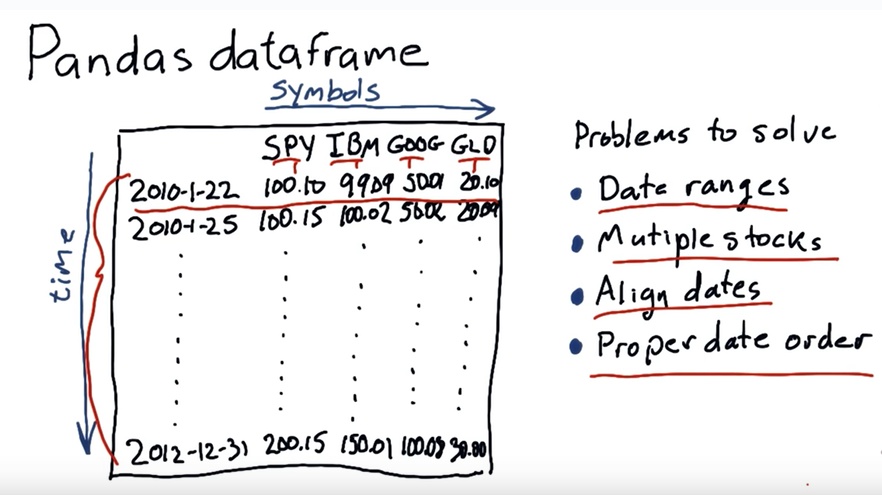 Pandas dataframe
Symbols
time
SPY IBM GOOG GLD
2010-1-22 100.10 99.09 50.01 20.10
2010-1-25 100.15 100.02 50.02 20.09
2012-12-31 200.15 150.01 100.08 30.00
Problems to solve
• Date ranges
• Mutiple stocks
• Align dates
• Proper date order